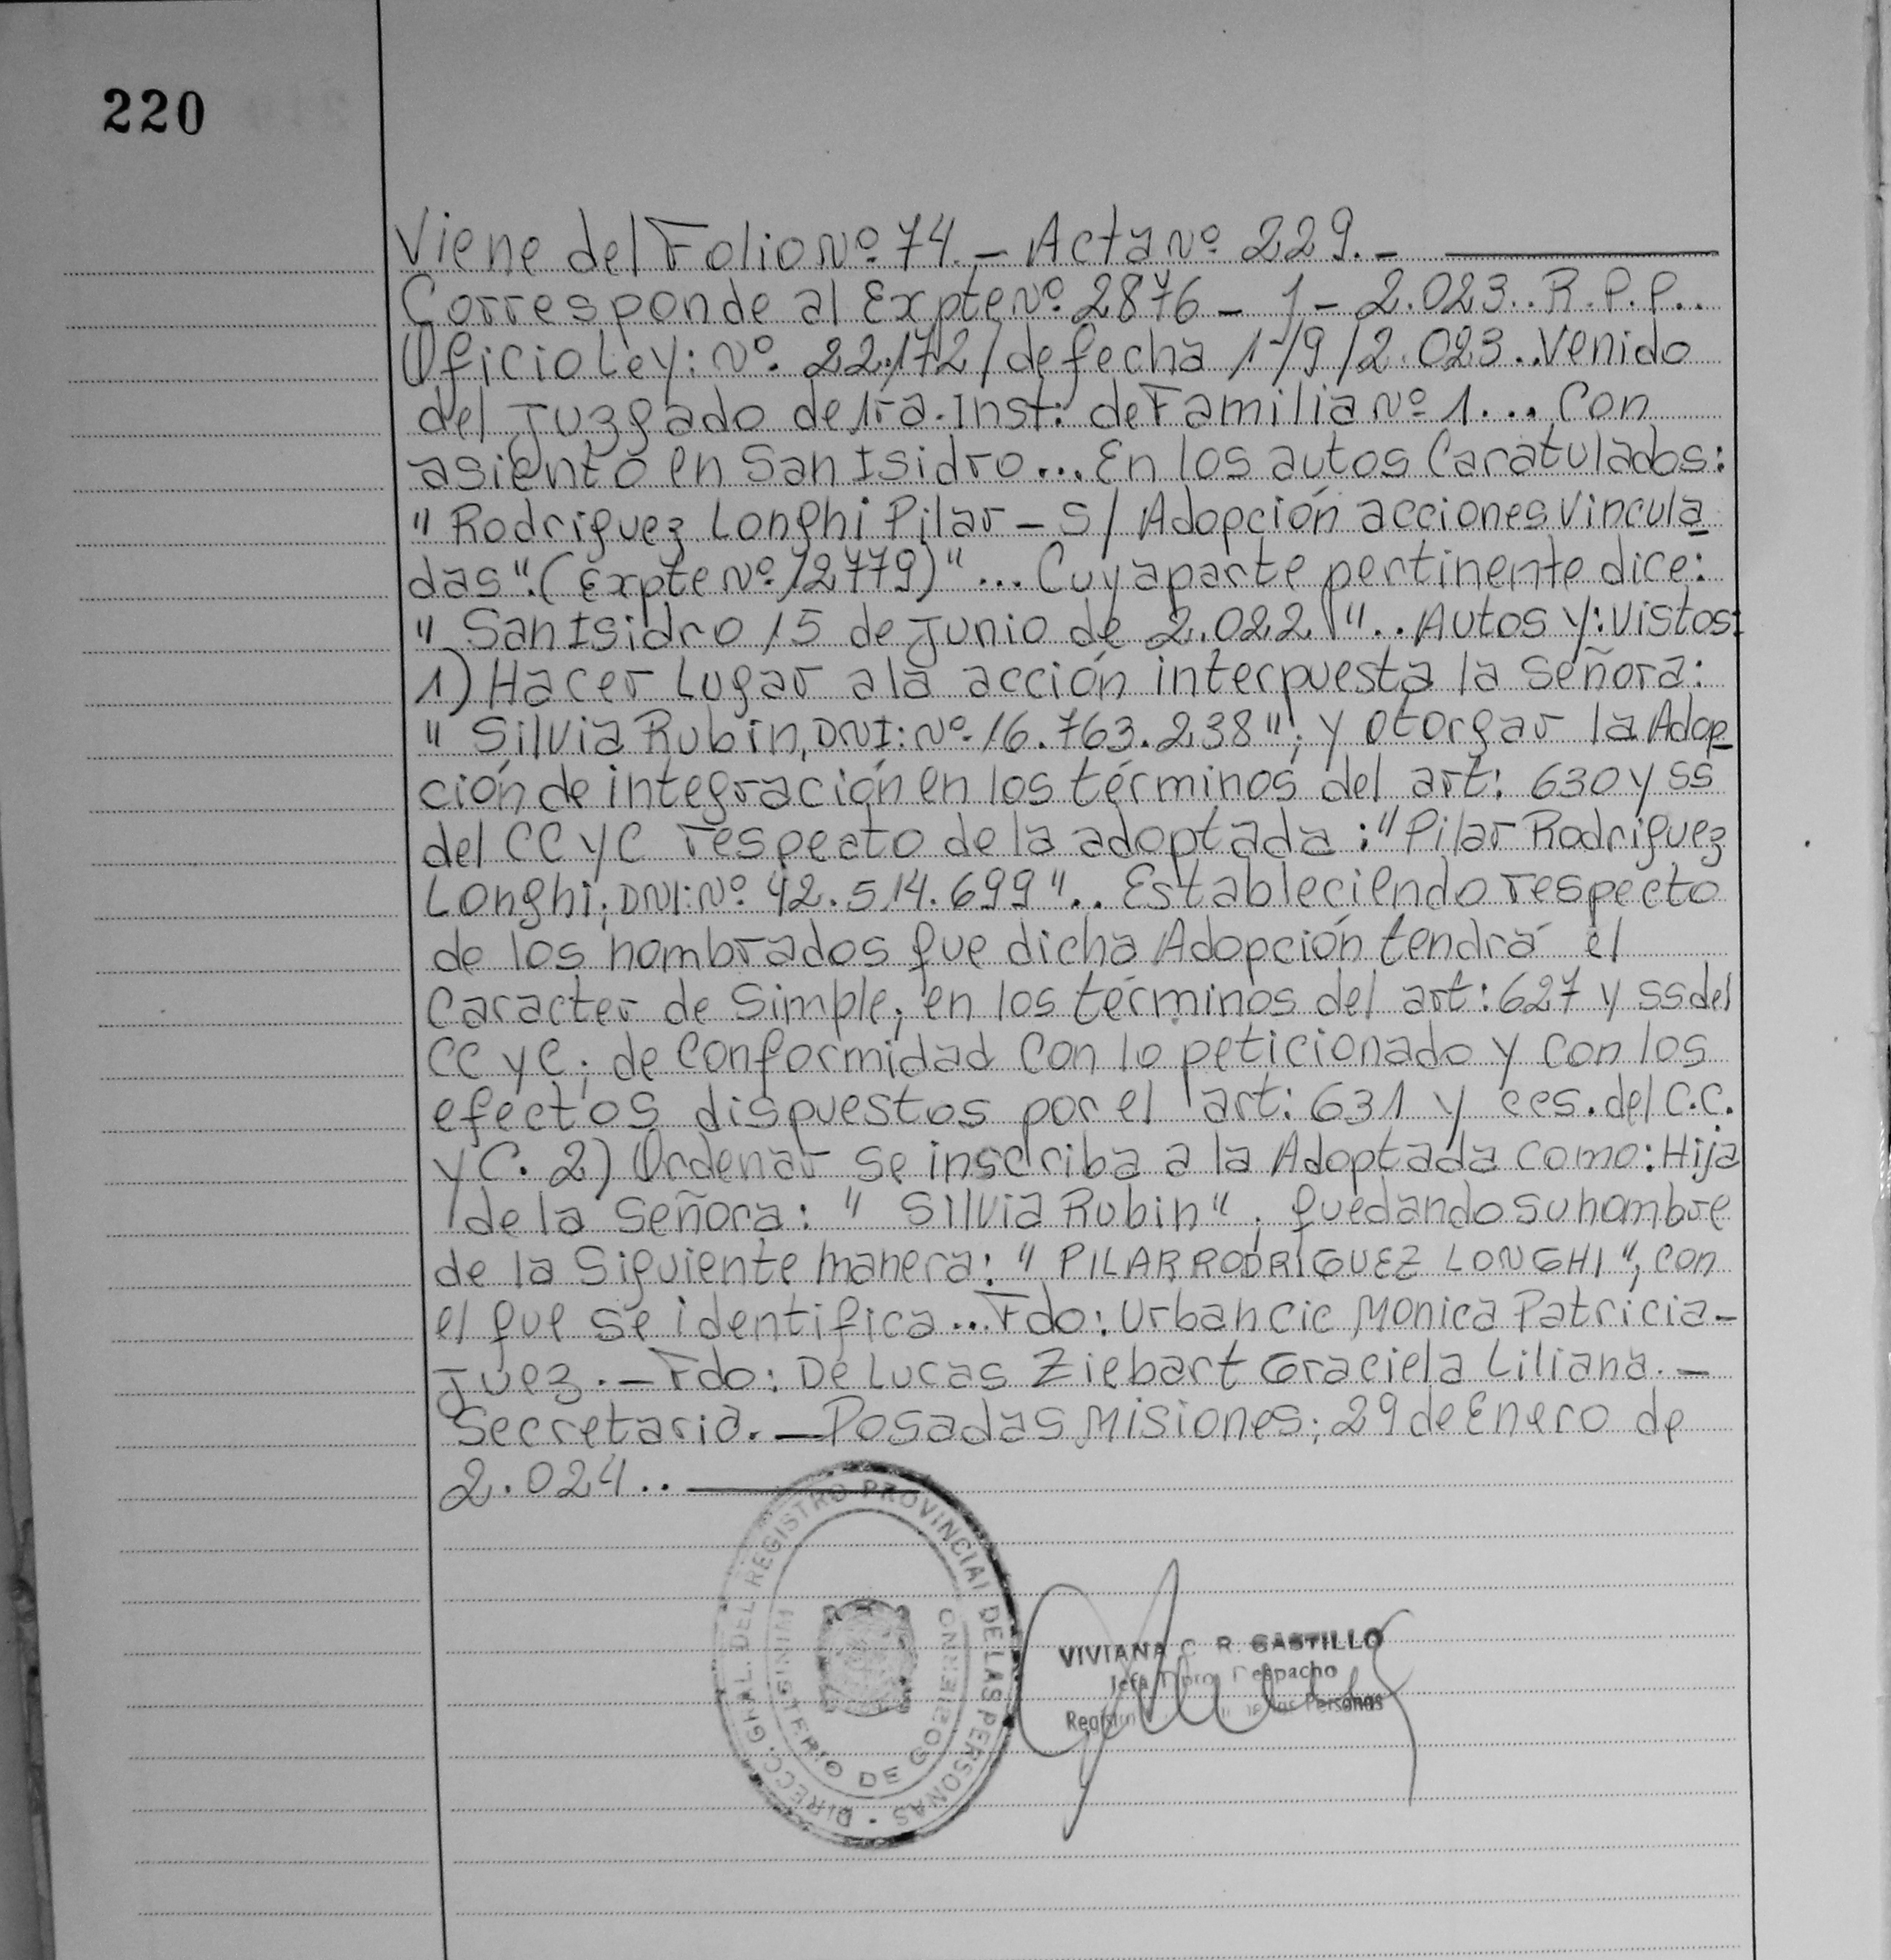 220
Viene del Folio Nº 74.- Acta Nº 229.-
Corresponde al Expte Nº 2876 - 1 - 2.023.. R.P.P..
Oficio Ley: Nº. 22.172/ de fecha 1/9/2.023.. Venido
del Juzgado de 1ra. Inst: de Familia Nº 1... Con
asiento en San Isidro... En los autos Caratulados:
" Rodriguez Longhi Pilar - S/ Adopción acciones Vincula
das". (Expte Nº 12779)"... Cuya parte pertinente dice:
" San Isidro 15 de Junio de 2.022 ".. Autos Y: Vistos:
1) Hacer Lugar a la acción interpuesta la Señora:
" Silvia Rubin, DNI: Nº. 16.763.238"; y otorgar la Adop
ción de integración en los términos del art: 630 y ss
del CC y C respecto de la adoptada: "Pilar Rodriguez
Longhi; DNI: Nº 42.514.699".. Estableciendo respecto
de los nombrados que dicha Adopción tendrá el
Caracter de Simple; en los términos del art: 627 y ss del
CC y C; de Conformidad Con lo peticionado y con los
efectos dispuestos por el art: 631 y ccs. del C.C.
y C. 2) Ordenar se inscriba a la Adoptada Como: Hija
de la Señora: " Silvia Rubin"; quedando su nombre
de la Siguiente manera: " PILAR RODRIGUEZ LONGHI", con
el que se identifica... Fdo: Urbancic Monica Patricia -
Juez. - Fdo: De Lucas Ziebart Graciela Liliana. -
Secretaria. - Posadas Misiones; 29 de Enero de
2.024..
DIRECC. GRAL. DEL REGISTRO PROVINCIAL DE LAS PERSONAS
MINISTERIO DE GOBIERNO
VIVIANA C. R. CASTILLO
Jefa Dpto. Despacho
Personas